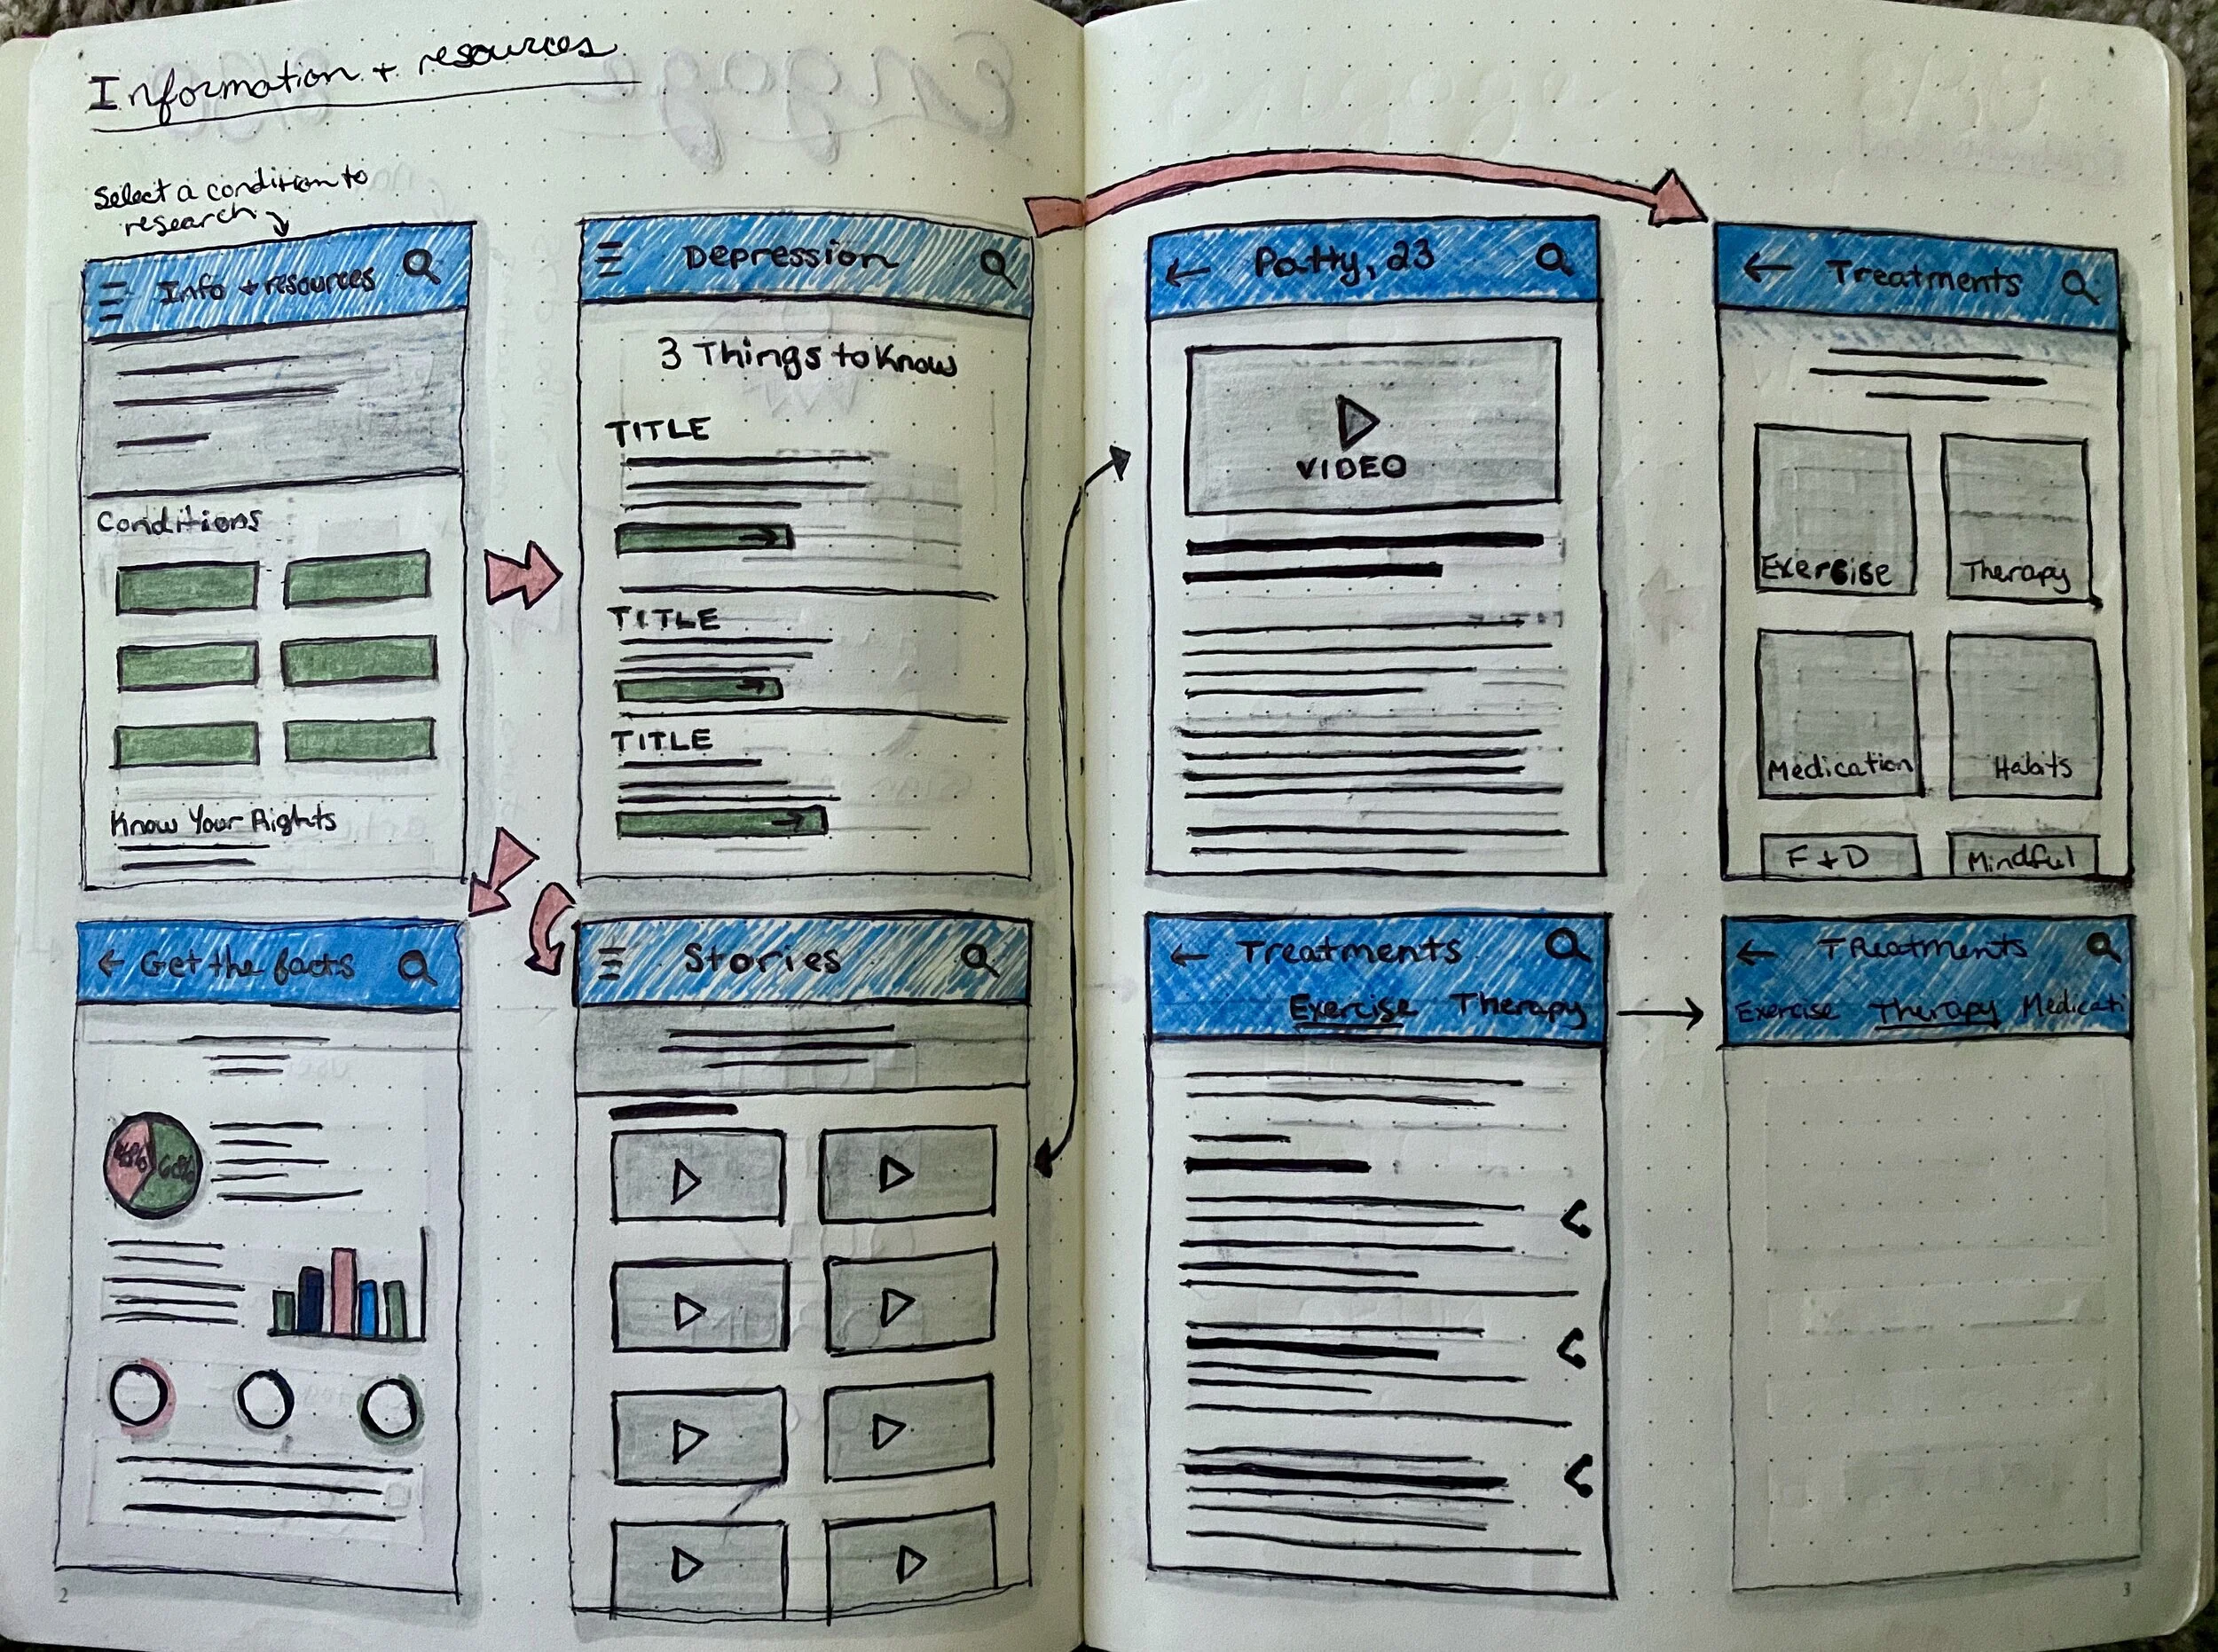 Information + resources
Select a condition to
research
Info + resources
Conditions
Know Your Rights
Depression
3 Things to Know
TITLE
TITLE
TITLE
Get the facts
60%
Stories
2
Patty, 23
VIDEO
Treatments
Exercise
Therapy
Medication
Habits
F + D
Mindful
Treatments
Exercise Therapy
TReatments
Exercise Therapy Medicati
3